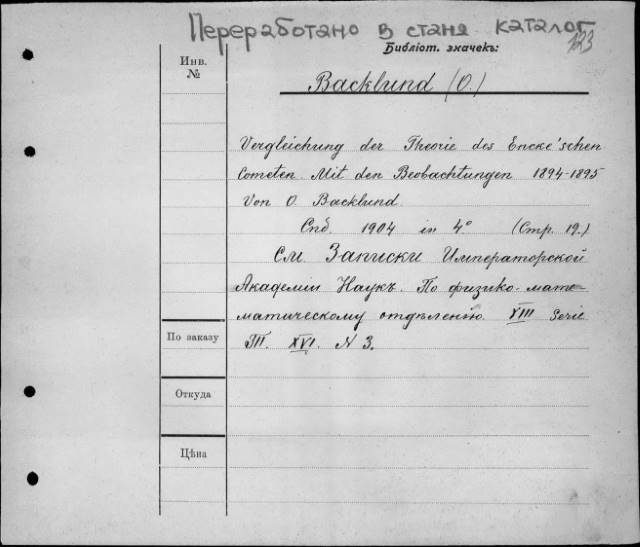 Переработано в станя каталог
Библіот. значекъ:
123
Инв.
№
Backlund (O.)
Vergleichung der Theorie des Encke'schen
Cometen. Mit den Beobachtungen 1894-1895
Von O. Backlund.
Спб. 1904 in 4° (Стр. 19.)
См Записки Императорской
Академіи Наукъ. По физико-мате-
матическому отдѣленію. VIII Serie
Т. XVI. N 3.
По заказу
Откуда
Цѣна